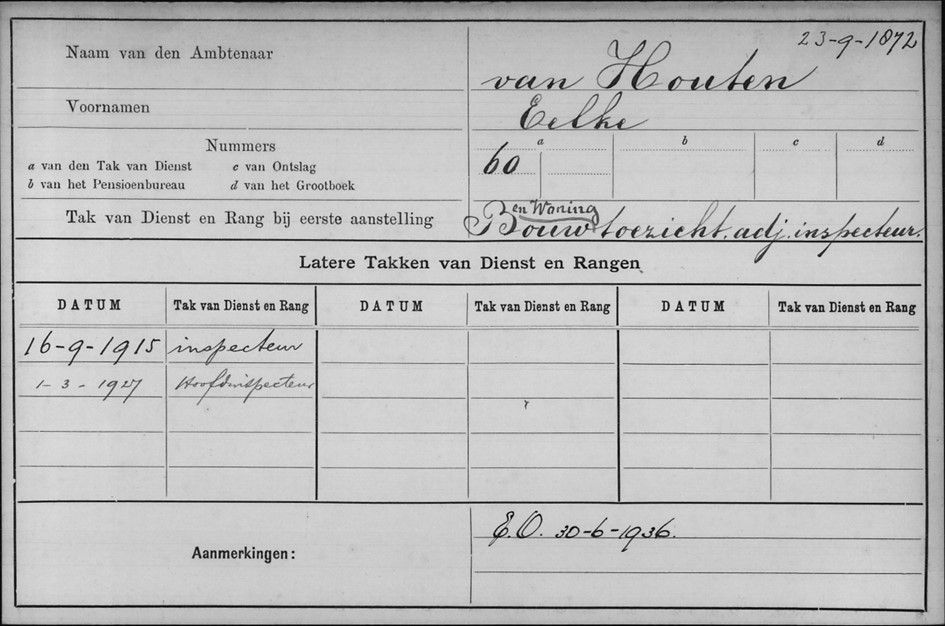 23-9-1872
Naam van den Ambtenaar
van Houten
Voornamen
Eelke
Nummers
a van den Tak van Dienst c van Ontslag
b van het Pensioenbureau d van het Grootboek
a b c d
60
Tak van Dienst en Rang bij eerste aanstelling
en Woning
Bouwtoezicht. adj. inspecteur.
Latere Takken van Dienst en Rangen
DATUM Tak van Dienst en Rang DATUM Tak van Dienst en Rang DATUM Tak van Dienst en Rang
16-9-1915 inspecteur
1-3-1927 Hoofdinspecteur
Aanmerkingen:
E.O. 30-6-1936.